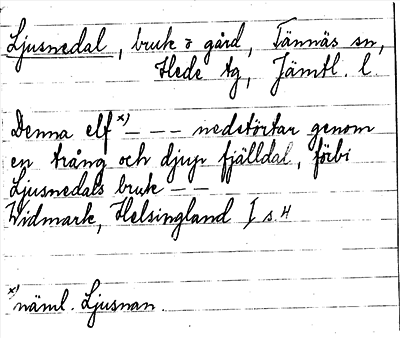 Ljusnedal, bruk o gård, Tännäs sn,
Hede tg, Jämtl. l.
Denna elf x) – – – nedstörtar genom
en trång och djup fjälldal, förbi
Ljusnedals bruk – –
Widmark, Helsingland I s. 4
x) näml. Ljusnan